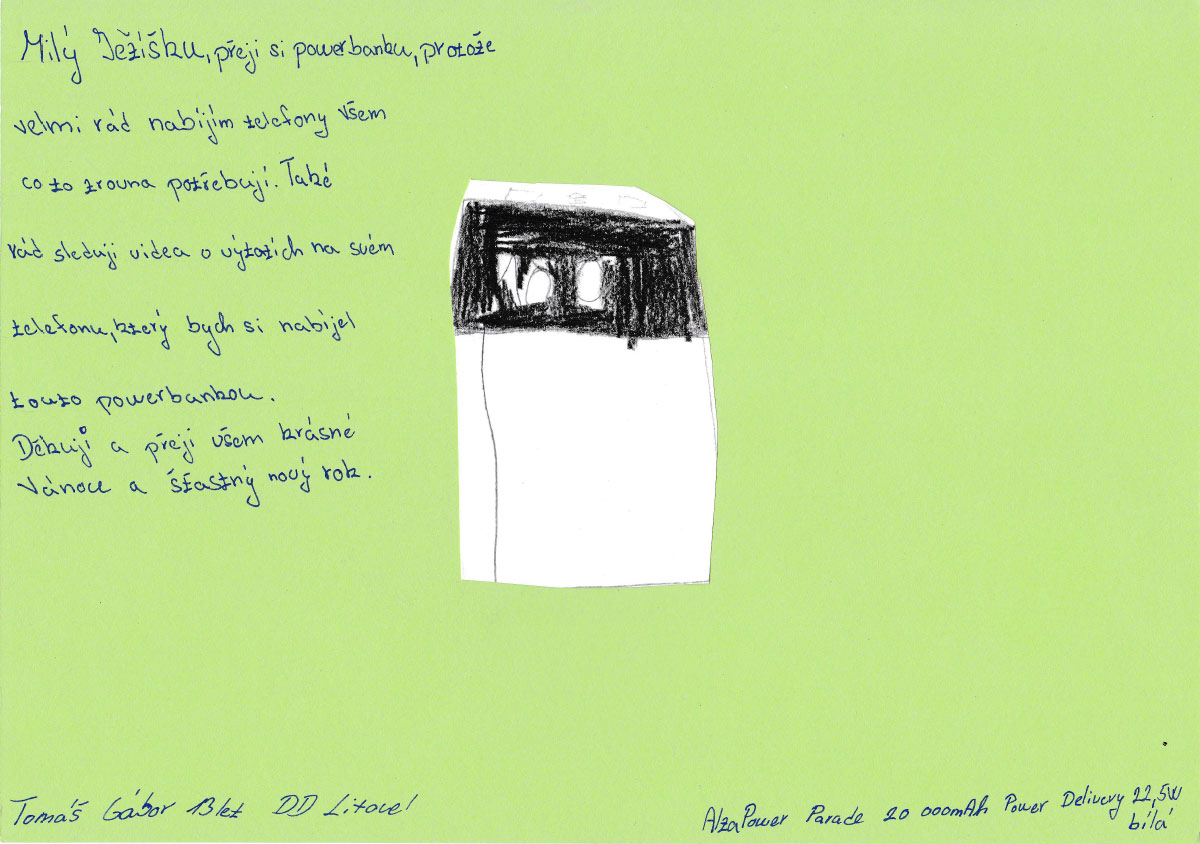 Milý Ježíšku, přeji si powerbanku, protože
velmi rád nabíjím telefony všem
co to zrovna potřebují. Také
rád sleduji videa o výtazích na svém
telefonu, který bych si nabíjel
touto powerbankou.
Děkuji a přeji všem krásné
Vánoce a šťastný nový rok.
Tomáš Gábor 13 let DD Litovel
AlzaPower Parade 20 000mAh Power Delivery 22,5W
bílá